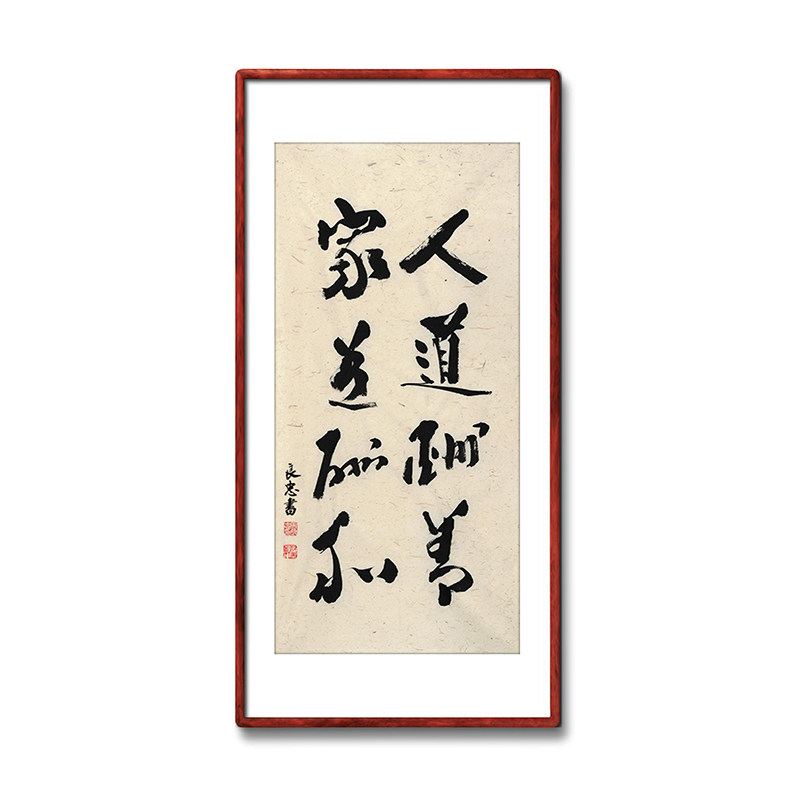 人道酬善
家道酬和
良忠書